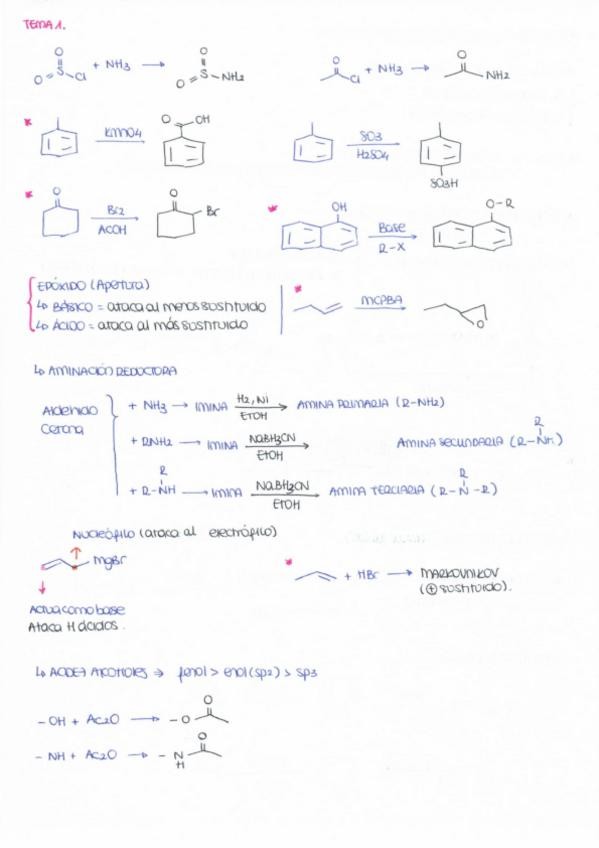 TEMA 1.
O O S Cl + NH3 → O O S NH2
O Cl + NH3 → O NH2
* KMnO4 → O OH
SO3 H2SO4 → SO3H
* O Br2 ACOH → O Br
* OH Base R-X → O-R
EPÓXIDO (Apertura)
↳ BÁSICO = ataca al menos sustituido
↳ ÁCIDO = ataca al más sustituido
* MCPBA → O
↳ AMINACIÓN REDUCTORA
Aldehído
Cetona
+ NH3 → IMINA H2, Ni EtOH → AMINA PRIMARIA (R-NH2)
+ RNH2 → IMINA NaBH3CN EtOH → AMINA SECUNDARIA (R-NH)
R
+ R-NH → IMINA NaBH3CN EtOH → AMINA TERCIARIA (R-N-R)
R
R
Nucleófilo (ataca al electrófilo)
MgBr
Actúa como base
Ataca H ácidos.
* + HBr → MARKOVNIKOV
(⊕ sustituido).
↳ ACIDEZ ALCOHOLES ⇒ fenol > enol (sp2) > sp3
- OH + Ac2O → - O O
- NH + Ac2O → - N H O